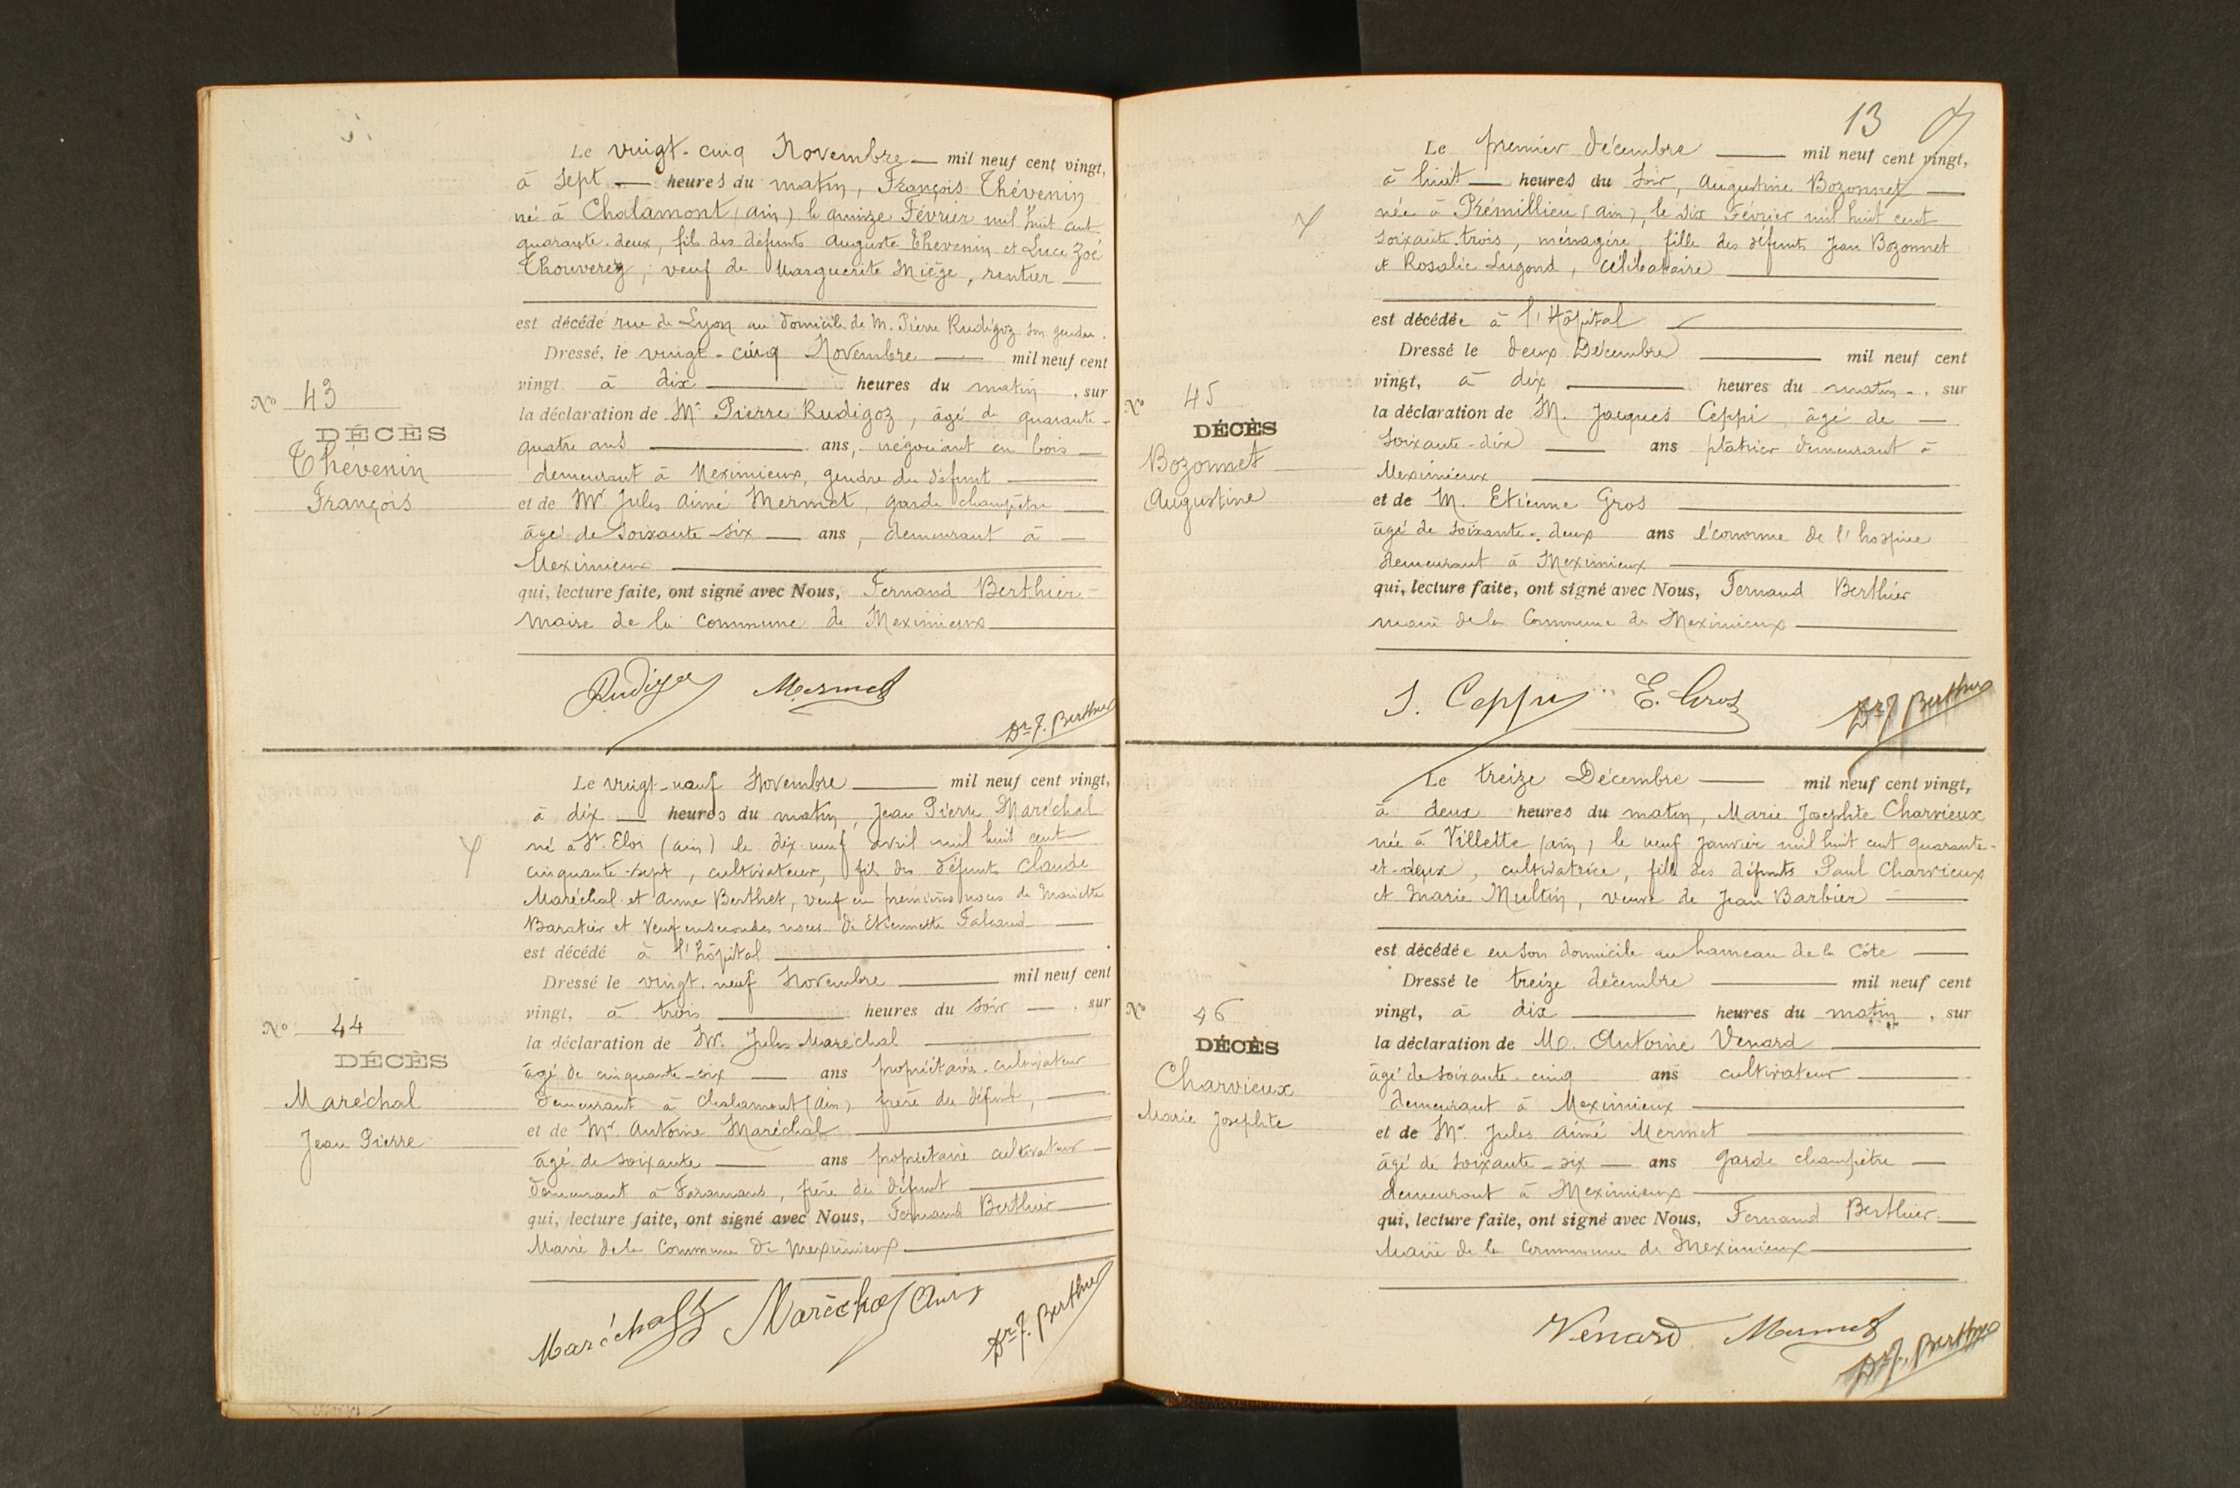 Le vingt-cinq Novembre — mil neuf cent vingt,
à sept — heures du matin, François Thévenin
né à Chalamont (ain) le quinze Février mil huit cent
quarante-deux, fils des défunts Auguste Thévenin et Luce Zoé
Thouverez, veuf de Marguerite Miège, rentier —
est décédé rue de Lyon au domicile de M. Pierre Rudigoz son gendre.
Dressé, le vingt-cinq Novembre — mil neuf cent
vingt à dix — heures du matin, sur
la déclaration de Mr Pierre Rudigoz, âgé de quarante-
quatre ans — ans, négociant en bois —
demeurant à Meximieux, gendre du défunt —
et de Mr Jules Aimé Mermet, garde champêtre —
âgé de soixante-six — ans, demeurant à —
Meximieux —
qui, lecture faite, ont signé avec Nous, Fernand Berthier —
Maire de la Commune de Meximieux —
Nº 43
DÉCÈS
Thévenin
François
Rudigoz Mermet
Dr F. Berthier
Le vingt-neuf Novembre — mil neuf cent vingt,
à dix — heures du matin, Jean Pierre Maréchal
né à St Eloi (ain) le dix-neuf avril mil huit cent
cinquante-sept, cultivateur, fils des défunts Claude
Maréchal et Anne Berthet, veuf en premières noces de Mariette
Baratier et Veuf en secondes noces de Etiennette Falcand —
est décédé à l'hôpital —
Dressé le vingt-neuf Novembre — mil neuf cent
vingt, à trois — heures du soir —, sur
la déclaration de Mr. Jules Maréchal —
âgé de cinquante-six — ans propriétaire-cultivateur
demeurant à Chalamont (ain) frère du défunt, —
et de Mr. Antoine Maréchal —
âgé de soixante — ans propriétaire cultivateur —
demeurant à Faramans, frère du défunt —
qui, lecture faite, ont signé avec Nous, Fernand Berthier —
Maire de la Commune de Meximieux —
Nº 44
DÉCÈS
Maréchal
Jean Pierre
Maréchal Maréchal
Dr F. Berthier
13
Le premier décembre — mil neuf cent vingt,
à huit — heures du soir, Augustine Bozonnet —
née à Prémillieu (ain), le dix Février mil huit cent
soixante-trois, ménagère, fille des défunts Jean Bozonnet
et Rosalie Lugond, célibataire —
est décédée à l'Hôpital —
Dressé le deux Décembre — mil neuf cent
vingt, à dix — heures du matin, sur
la déclaration de M. Jacques Ceppi âgé de —
soixante-dix — ans plâtrier demeurant à
Meximieux —
et de M. Etienne Gros —
âgé de soixante-deux ans l'économe de l'hospice
demeurant à Meximieux —
qui, lecture faite, ont signé avec Nous, Fernand Berthier
maire de la Commune de Meximieux —
Nº 45
DÉCÈS
Bozonnet
Augustine
J. Ceppi E. Gros
Dr F. Berthier
Le treize Décembre — mil neuf cent vingt,
à deux heures du matin, Marie Josephte Charvieux
née à Villette (ain) le neuf Janvier mil huit cent quarante-
et-deux, cultivatrice, fille des défunts Paul Charvieux
et Marie Multin, veuve de Jean Barbier —
est décédée en son domicile au hameau de la Côte —
Dressé le treize décembre — mil neuf cent
vingt, à dix — heures du matin, sur
la déclaration de M. Antoine Venard —
âgé de soixante-cinq ans cultivateur —
demeurant à Meximieux —
et de Mr. Jules Aimé Mermet —
âgé de soixante-six — ans garde champêtre —
demeurant à Meximieux —
qui, lecture faite, ont signé avec Nous, Fernand Berthier —
Maire de la Commune de Meximieux —
Nº 46
DÉCÈS
Charvieux
Marie Josephte
Venard Mermet
Dr F. Berthier